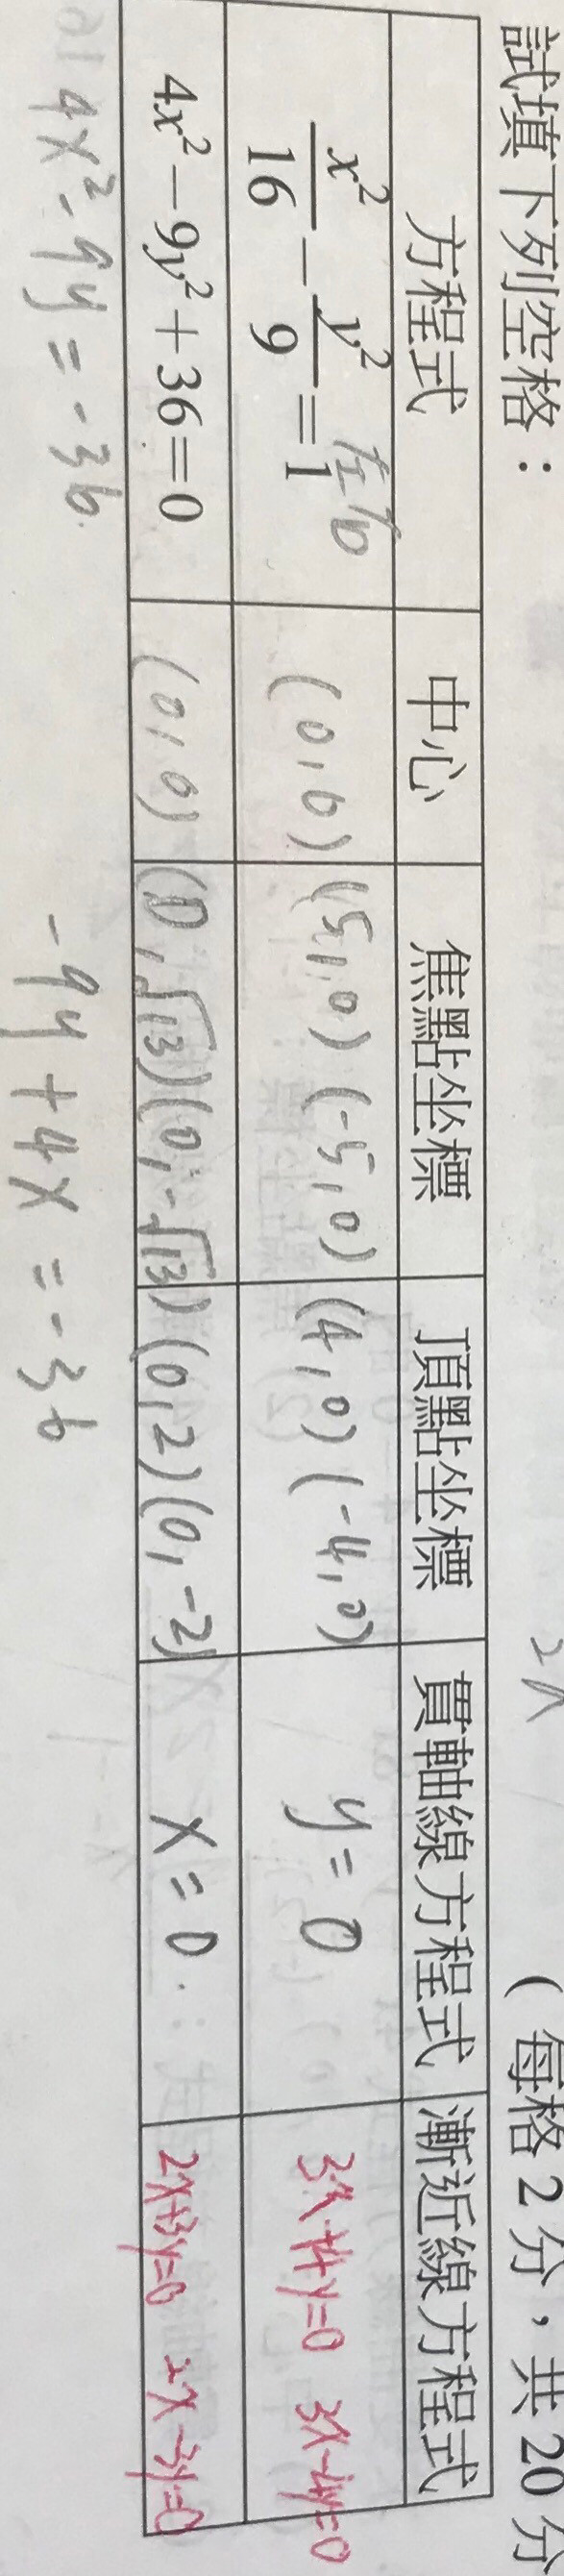 試填下列空格： （每格2分，共20分
方程式 中心 焦點坐標 頂點坐標 貫軸線方程式 漸近線方程式
x²/16 − y²/9 = 1 左右 (0,0) (5,0) (-5,0) (4,0) (-4,0) y=0 3x+4y=0 3x-4y=0
4x²−9y²+36=0 (0,0) (0,√13) (0,-√13) (0,2) (0,-2) x=0 2x+3y=0 2x-3y=0
4x²-9y=-36
-9y+4x=-36